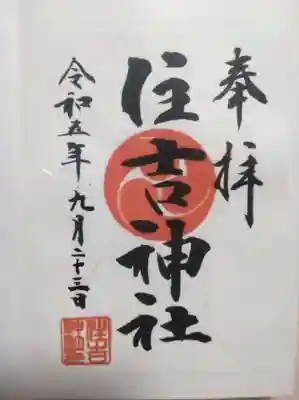 奉拝
住吉神社
令和五年九月二十三日